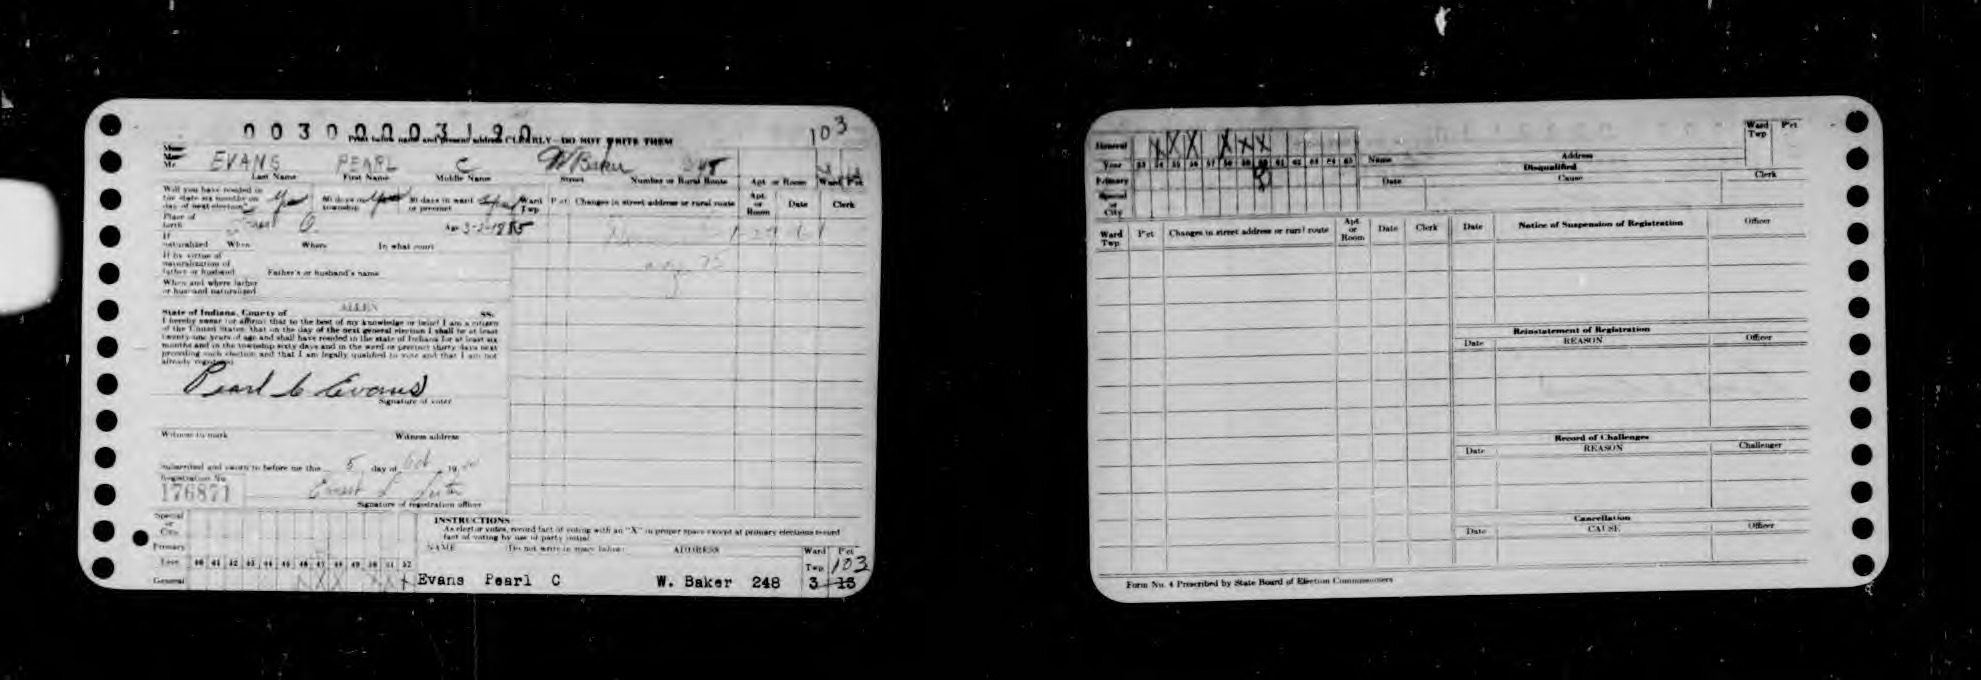 00300003120
Print below name and present address CLEARLY—DO NOT WRITE THEM
103
Mr. EVANS PEARL C W Baker 248
Last Name First Name Middle Name Street Number or Rural Route Apt. or Room Ward Pct
Will you have resided in the state six months on day of next election? Yes 60 days in township Yes 30 days in ward or precinct Yes
Ward Twp Pct Changes in street address or rural route Apt. or Room Date Clerk
Place of birth O. Age 3-2-1885
If naturalized When Where In what court
If by virtue of naturalization of father or husband Father's or husband's name
When and where father or husband naturalized
State of Indiana, County of ALLEN SS.
I hereby swear (or affirm) that to the best of my knowledge or belief I am a citizen
of the United States; that on the day of the next general election I shall be at least
twenty-one years of age and shall have resided in the state of Indiana for at least six
months and in the township sixty days and in the ward or precinct thirty days next
preceding such election and that I am legally qualified to vote and that I am not
already registered.
Pearl C Evans
Signature of voter
Witness to mark Witness address
Subscribed and sworn to before me this 5 day of Oct 19
Registration No.
176871
Ernest L
Signature of registration officer
Special or City
Primary
Year 40 41 42 43 44 45 46 47 48 49 50 51 52
General X X X X X
INSTRUCTIONS
As elector votes, record fact of voting with an "X" in proper space except at primary elections record
fact of voting by use of party initial.
NAME (Do not write in space below) ADDRESS Ward Twp Pct
103
Evans Pearl C W. Baker 248 3 15
General X X X X X X
Year 53 54 55 56 57 58 59 60 61 62 63 64 65
Primary
Special or City
Name Address Ward Twp Pct
Disqualified
Date Cause Clerk
Ward Twp Pct Changes in street address or rural route Apt. or Room Date Clerk
Date Notice of Suspension of Registration Officer
Reinstatement of Registration
Date REASON Officer
Record of Challenges
Date REASON Challenger
Cancellation
Date CAUSE Officer
Form No. 4 Prescribed by State Board of Election Commissioners